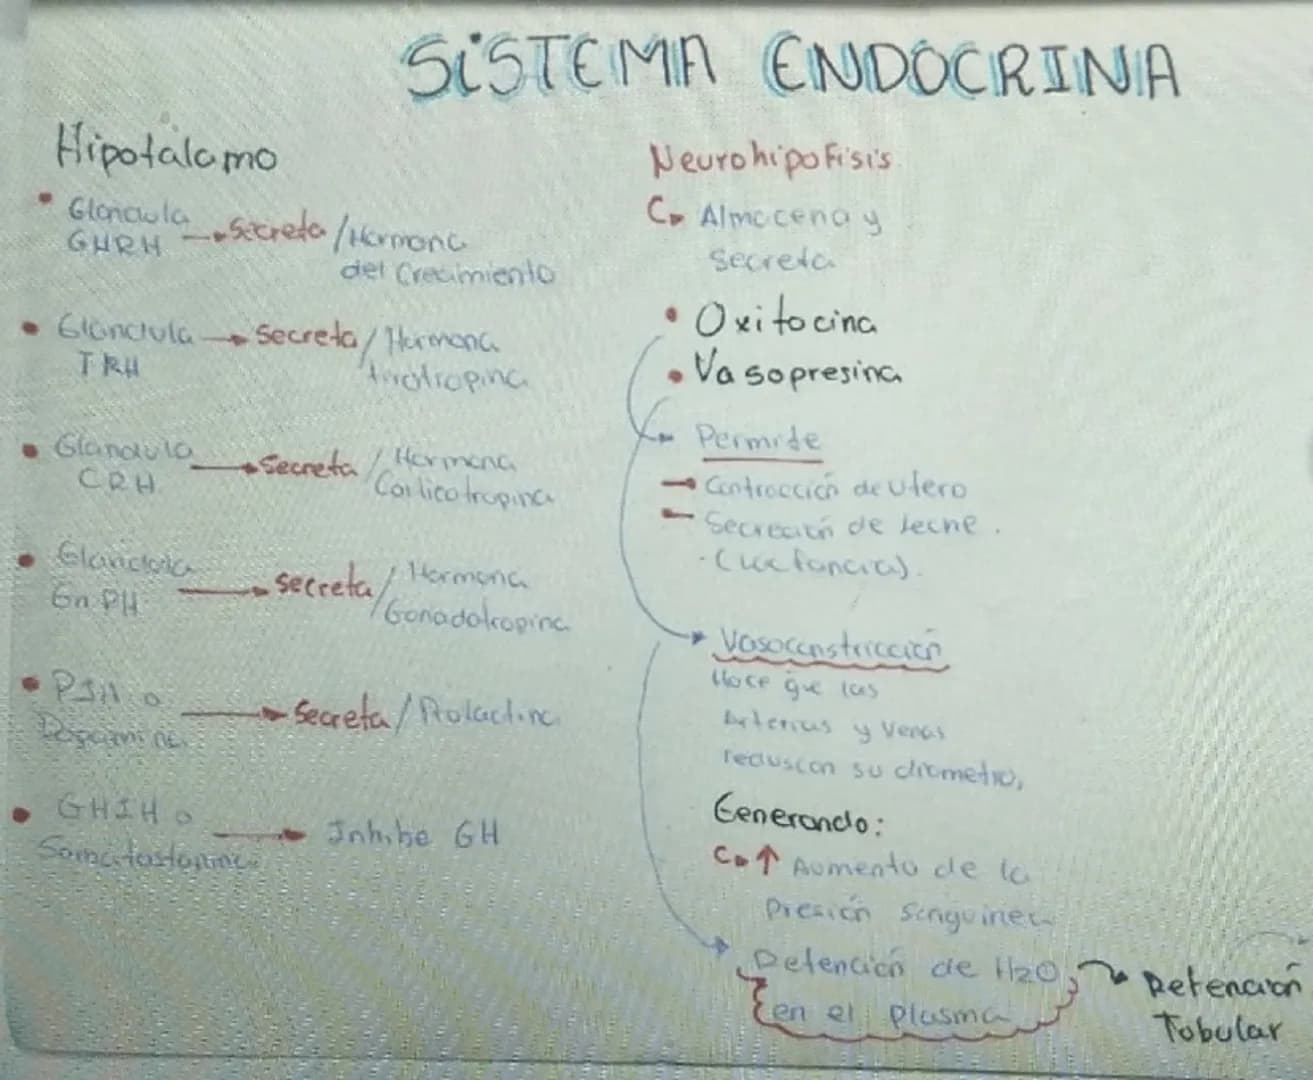 SiSTEMA ENDOCRINA
Hipotalamo
• Glandula
GHRH → Secreta / Hormona
del Crecimiento
• Glandula → Secreta / Hormona
TRH tirotropina
• Glandula → Secreta / Hormona
CRH Corticotropina
• Glandula → Secreta / Hormona
GnRH Gonadotropina
• PIH o → Secreta / Prolactina
Dopamina
• GHIH o → Inhibe GH
Neurohipofisis
Almacena y
Secreta
• Oxitocina
• Vasopresina
Permite
→ Contracción de utero
- Secreción de leche.
(Lactancia).
Vasoconstricción
Hace que las
Arterias y Venas
reduscan su diametro,
Generando:
↑ Aumento de la
Presión Sanguinea
Detención de H2O → Retención
en el plasma Tubular